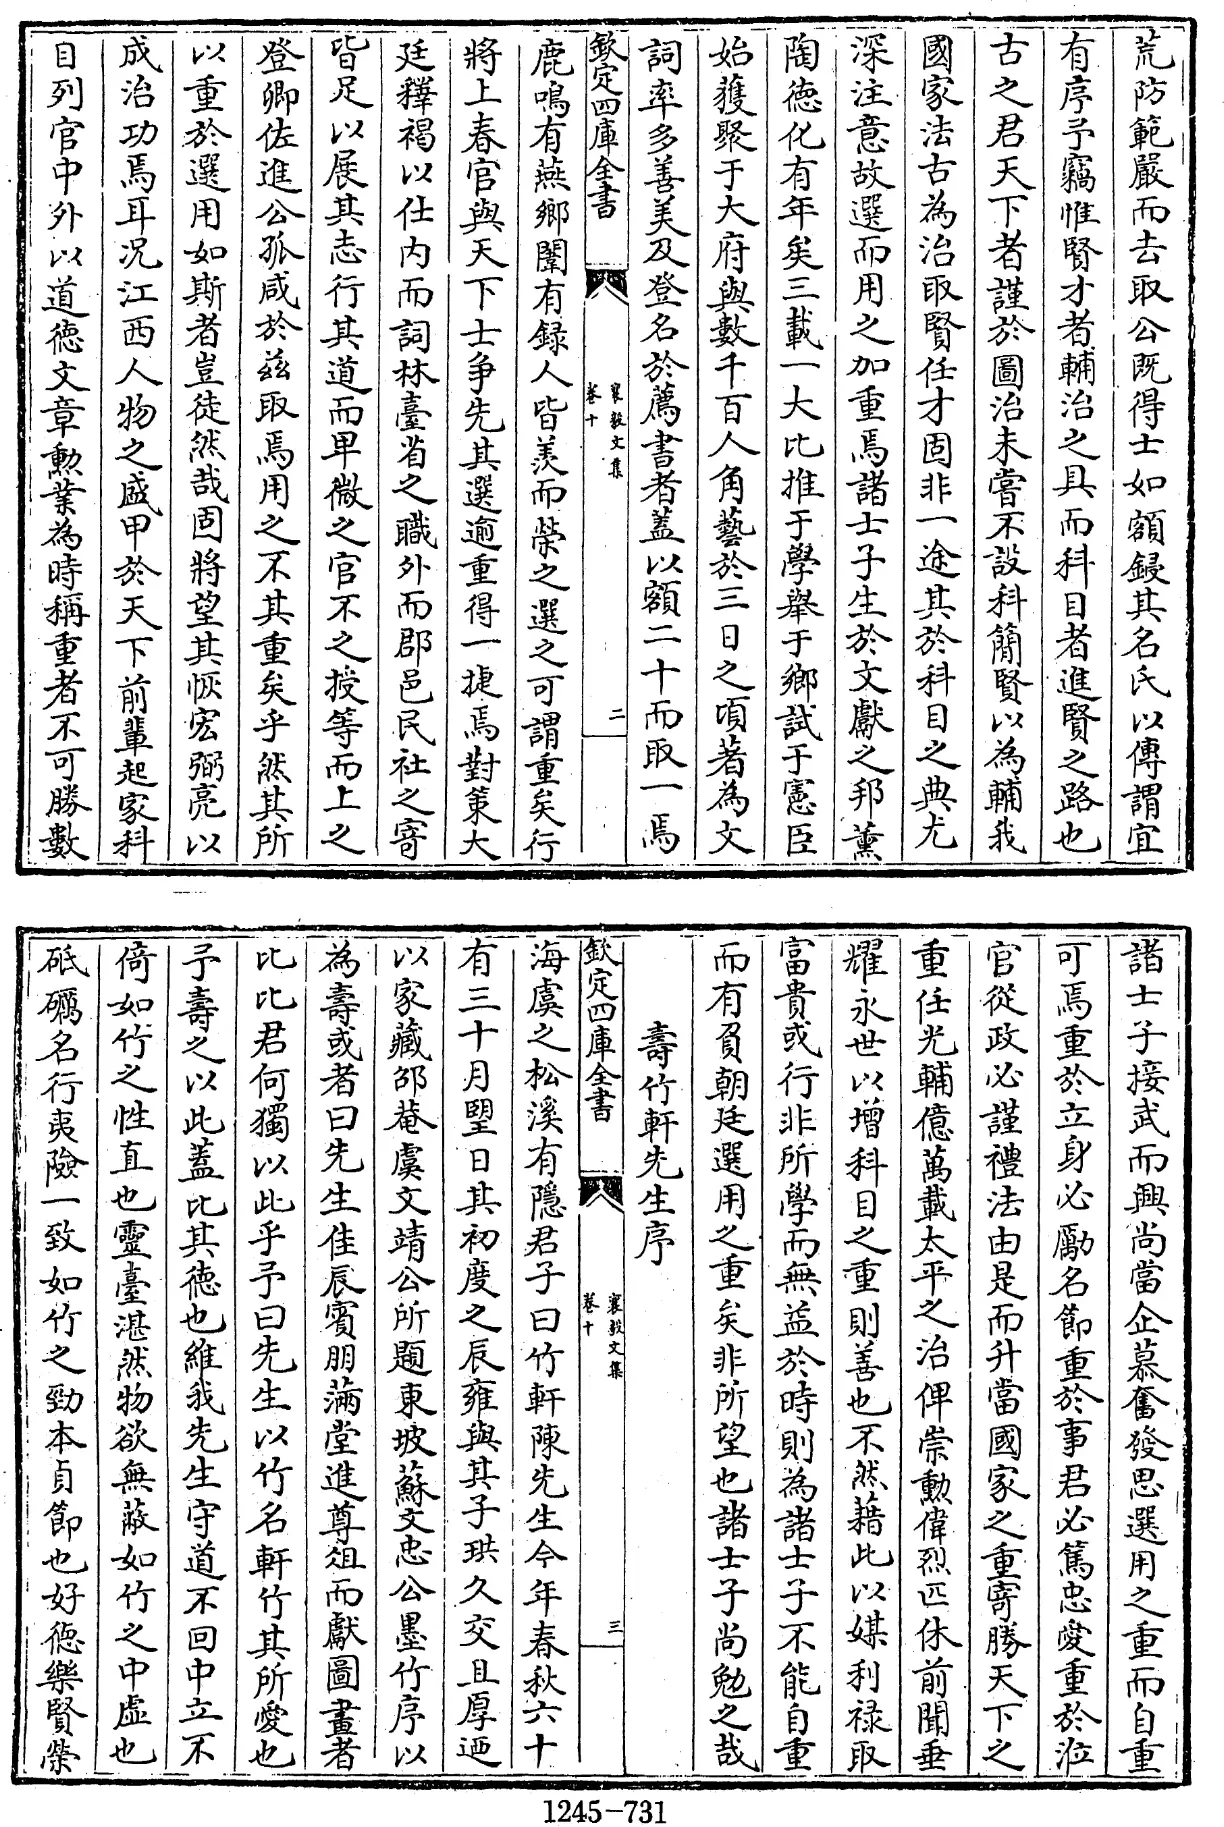 荒防範嚴而去取公既得士如額鋟其名氏以傳謂宜
有序予竊惟賢才者輔治之具而科目者進賢之路也
古之君天下者謹於圖治未嘗不設科簡賢以為輔我
國家法古為治取賢任才固非一途其於科目之典尤
深注意故選而用之加重焉諸士子生於文獻之邦薫
陶徳化有年矣三載一大比推于學舉于鄉試于憲臣
始獲聚于大府與數千百人角藝於三日之頃著為文
詞率多善美及登名於薦書者蓋以額二十而取一焉
欽定四庫全書
襄毅文集
卷十
二
鹿鳴有燕鄉闈有録人皆羡而榮之選之可謂重矣行
將上春官與天下士爭先其選逾重得一捷焉對策大
廷釋褐以仕内而詞林臺省之職外而郡邑民社之寄
皆足以展其志行其道而卑微之官不之授等而上之
登卿佐進公孤咸於兹取焉用之不其重矣乎然其所
以重於選用如斯者豈徒然哉固將望其恢宏弼亮以
成治功焉耳况江西人物之盛甲於天下前輩起家科
目列官中外以道徳文章勲業為時稱重者不可勝數
諸士子接武而興尚當企慕奮發思選用之重而自重
可焉重於立身必勵名節重於事君必篤忠愛重於涖
官從政必謹禮法由是而升當國家之重寄勝天下之
重任光輔億萬載太平之治俾崇勲偉烈匹休前聞垂
耀永世以增科目之重則善也不然藉此以媒利禄取
富貴或行非所學而無益於時則為諸士子不能自重
而有負朝廷選用之重矣非所望也諸士子尚勉之哉
壽竹軒先生序
欽定四庫全書
襄毅文集
卷十
三
海虞之松溪有隱君子曰竹軒陳先生今年春秋六十
有三十月朢日其初度之辰雍與其子珙久交且厚迺
以家藏邵菴虞文靖公所題東坡蘇文忠公墨竹序以
為壽或者曰先生佳辰賓朋滿堂進尊俎而獻圖畫者
比比君何獨以此乎予曰先生以竹名軒竹其所愛也
予壽之以此蓋比其徳也維我先生守道不回中立不
倚如竹之性直也靈臺湛然物欲無蔽如竹之中虚也
砥礪名行夷險一致如竹之勁本貞節也好徳樂賢榮
1245-731